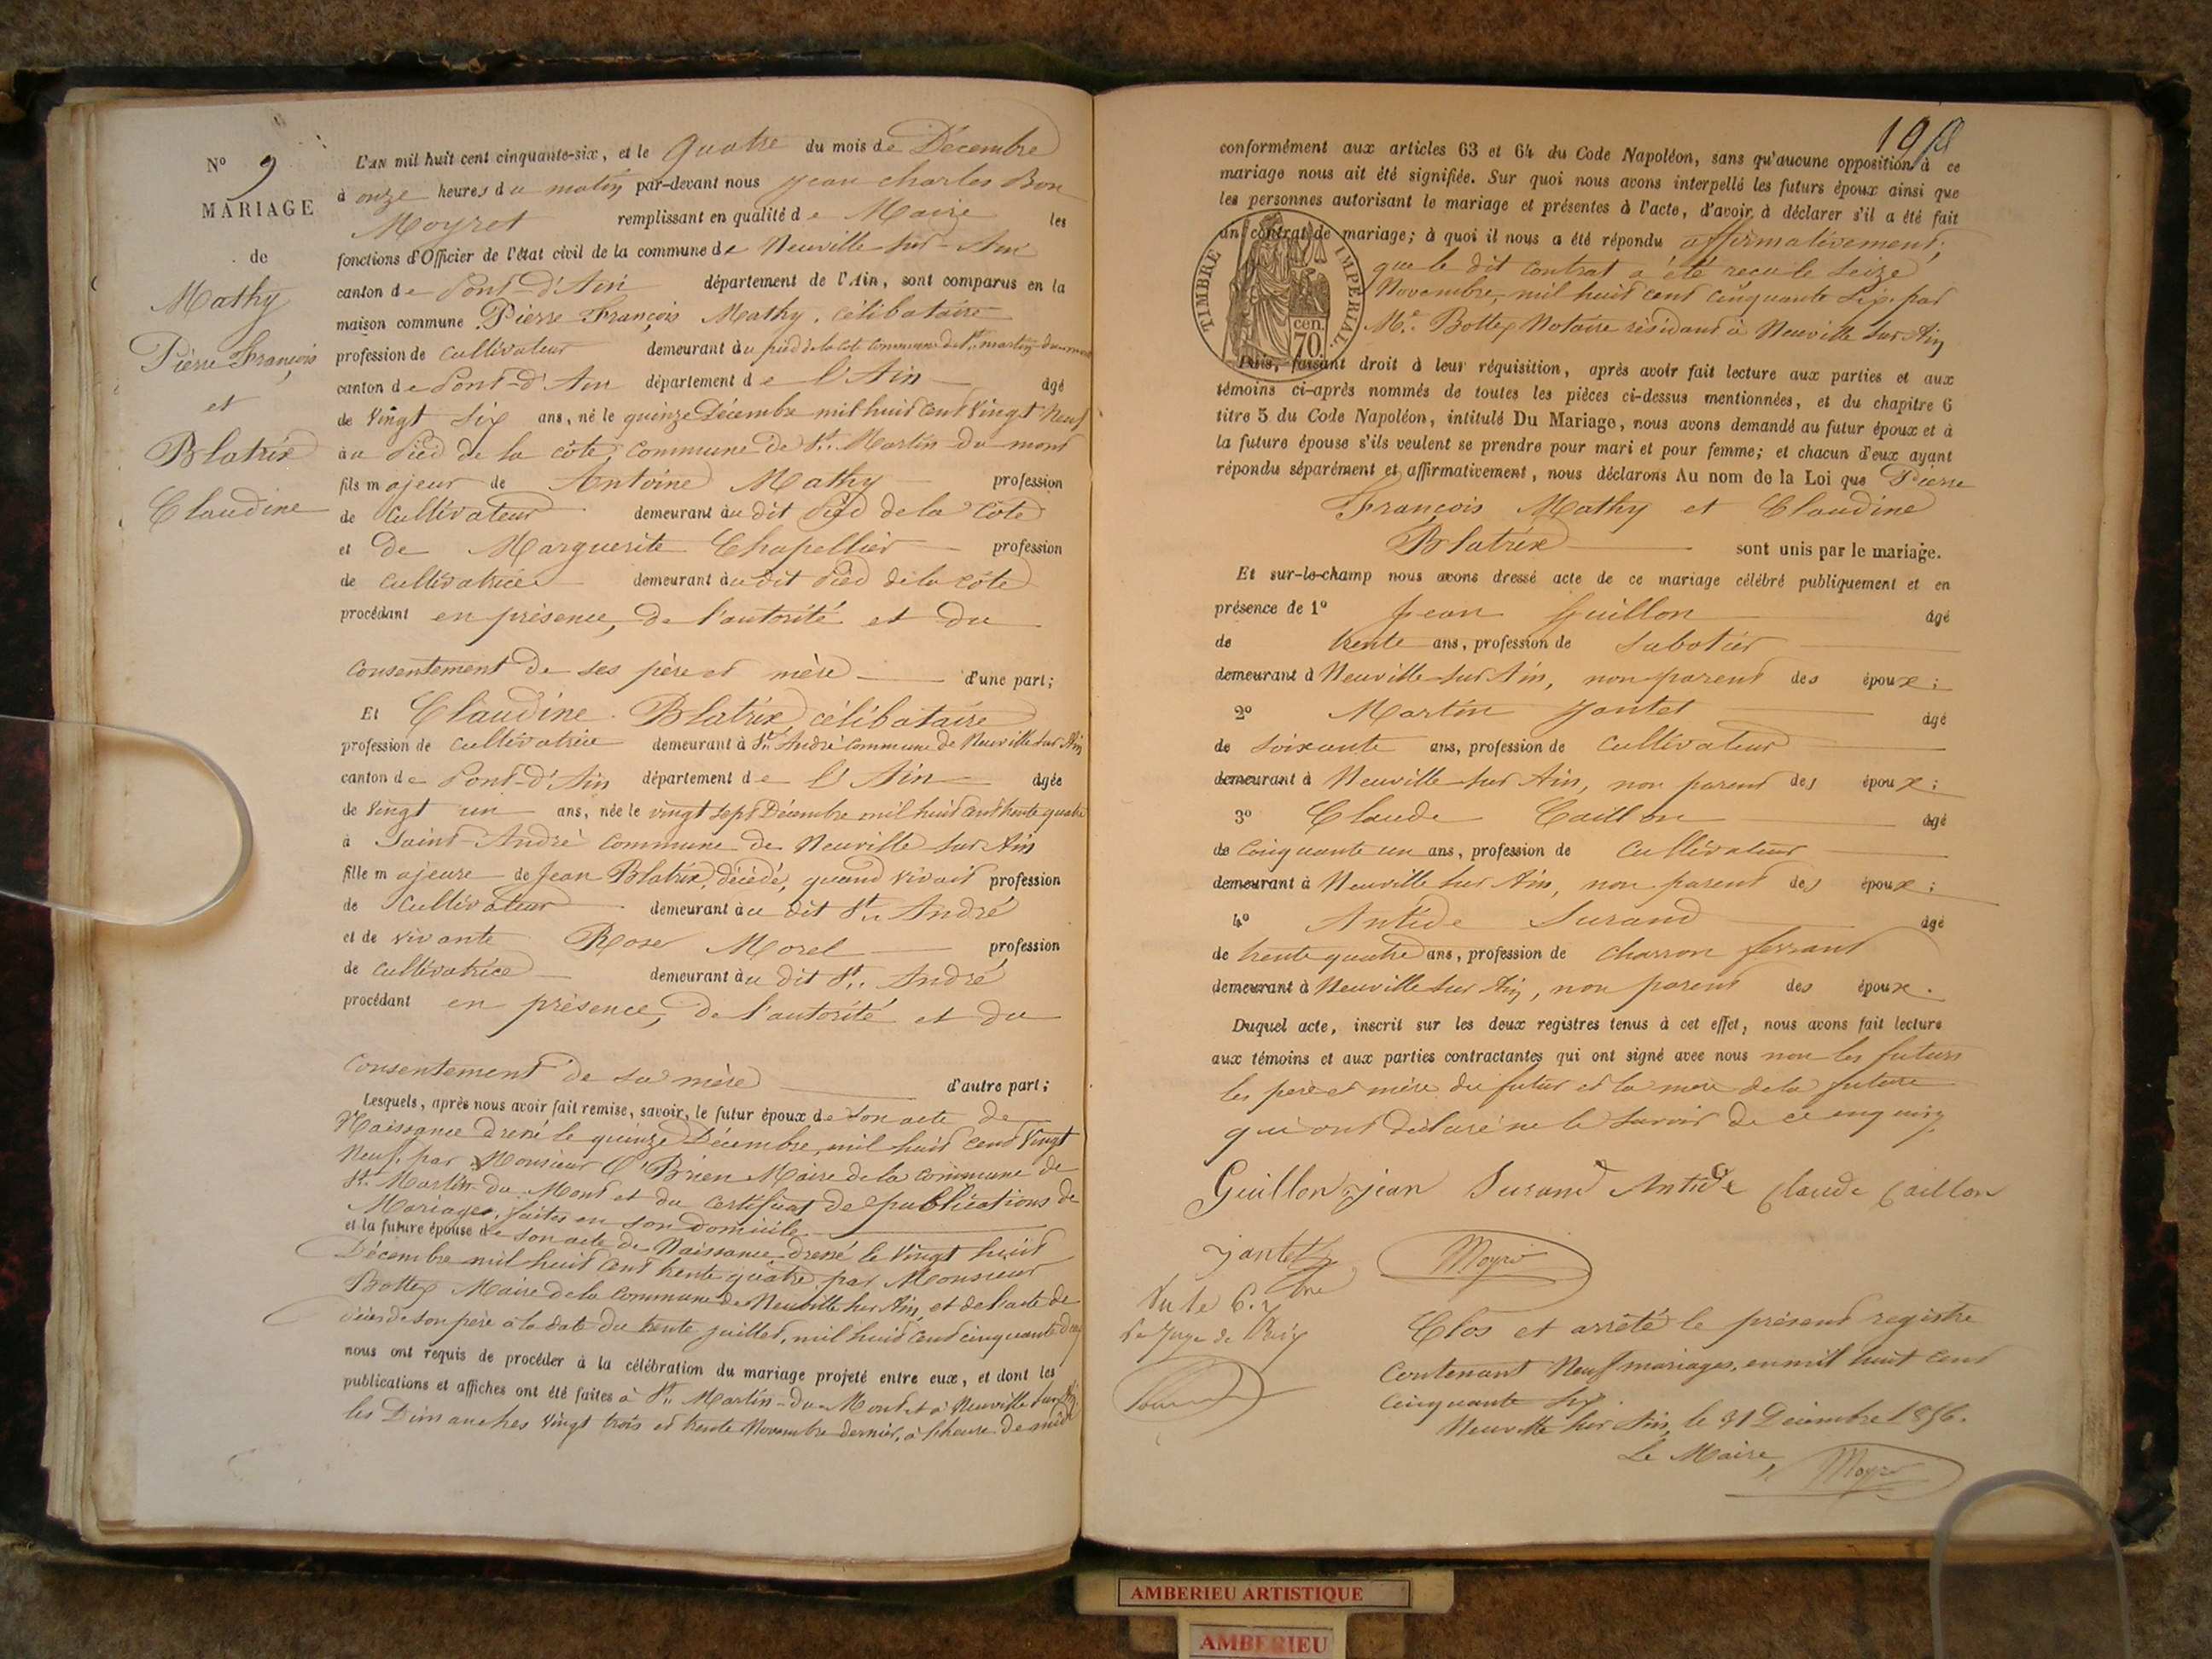 N° 9
MARIAGE
de
Mathy
Pierre François
et
Blatrix
Claudine
L'AN mil huit cent cinquante-six, et le quatre du mois de Décembre
à onze heures du matin par-devant nous Jean Charles Bon
Moyret remplissant en qualité de Maire les
fonctions d'Officier de l'état civil de la commune de Neuville sur Ain
canton de Pont d'Ain département de l'Ain, sont comparus en la
maison commune Pierre François Mathy, célibataire
profession de cultivateur demeurant au pied de la côte commune de St. martin du mont
canton de Pont-d'Ain département de l'Ain âgé
de Vingt Six ans, né le quinze Décembre mil huit cent Vingt Neuf
au Pied de la côte, commune de St. Martin du mont
fils majeur de Antoine Mathy profession
de Cultivateur demeurant au dit Pied de la Côte
et de Marguerite Chapellier profession
de cultivatrice demeurant au dit Pied de la côte
procédant en présence, de l'autorité et du
consentement de ses père et mère d'une part;
Et Claudine Blatrix, célibataire
profession de cultivatrice demeurant à St. André commune de Neuville sur Ain
canton de Pont-d'Ain département de l'Ain âgée
de vingt un ans, née le vingt sept Décembre mil huit cent trente quatre
à Saint-André commune de Neuville sur Ain
fille majeure de Jean Blatrix, décédé, quand vivait profession
de Cultivateur demeurant au dit St. André
et de vivante Rose Morel profession
de cultivatrice demeurant au dit St. André
procédant en présence, de l'autorité et du
consentement de sa mère d'autre part;
Lesquels, après nous avoir fait remise, savoir, le futur époux de son acte de
Naissance dressé le quinze Décembre, mil huit cent Vingt
Neuf, par Monsieur O'Brien Maire de la commune de
St. Martin-du-Mont et du certificat de publications de
Mariages, faites en son domicile
et la future épouse de son acte de Naissance dressé le Vingt huit
Décembre mil huit cent trente quatre par Monsieur
Bottex Maire de la Commune de Neuville sur Ain, et de l'acte de
décès de son père à la date du trente juillet, mil huit cent cinquante
nous ont requis de procéder à la célébration du mariage projeté entre eux, et dont les
publications et affiches ont été faites à St. Martin-du-Mont et à Neuville sur Ain
les Dimanches Vingt trois et trente Novembre dernier, à l'heure de midi
conformément aux articles 63 et 64 du Code Napoléon, sans qu'aucune opposition à ce
mariage nous ait été signifiée. Sur quoi nous avons interpellé les futurs époux ainsi que
les personnes autorisant le mariage et présentes à l'acte, d'avoir à déclarer s'il a été fait
un contrat de mariage; à quoi il nous a été répondu affirmativement,
que le dit contrat a été reçu le Seize
Novembre, mil huit cent cinquante Six par
Me. Bottex Notaire résidant à Neuville sur Ain
TIMBRE IMPÉRIAL
cen.
70
Puis, faisant droit à leur réquisition, après avoir fait lecture aux parties et aux
témoins ci-après nommés de toutes les pièces ci-dessus mentionnées, et du chapitre 6
titre 5 du Code Napoléon, intitulé Du Mariage, nous avons demandé au futur époux et à
la future épouse s'ils veulent se prendre pour mari et pour femme; et chacun d'eux ayant
répondu séparément et affirmativement, nous déclarons Au nom de la Loi que Pierre
François Mathy et Claudine
Blatrix sont unis par le mariage.
Et sur-le-champ nous avons dressé acte de ce mariage célébré publiquement et en
présence de 1° Jean Guillon âgé
de trente ans, profession de Sabotier
demeurant à Neuville sur Ain, non parent des époux;
2° Martin Jantet âgé
de soixante ans, profession de cultivateur
demeurant à Neuville sur Ain, non parent des époux;
3° Claude Caillon âgé
de Cinquante un ans, profession de Cultivateur
demeurant à Neuville sur Ain, non parent des époux;
4° Antide Durand âgé
de trente quatre ans, profession de charron ferrant
demeurant à Neuville sur Ain, non parent des époux.
Duquel acte, inscrit sur les deux registres tenus à cet effet, nous avons fait lecture
aux témoins et aux parties contractantes qui ont signé avec nous non les futurs
les père et mère du futur et la mère de la future
qui ont déclaré ne le savoir de ce enquis
Guillon jean Durand Antide Claude Caillon
jantet Moyret
Vu le 6.
Le Juge de Paix
Clos et arrêté le présent registre
Contenant Neuf mariages, en mil huit cent
Cinquante Six.
Neuville sur Ain, le 31 Décembre 1856.
Le Maire,
Moyret
AMBERIEU ARTISTIQUE
AMBERIEU